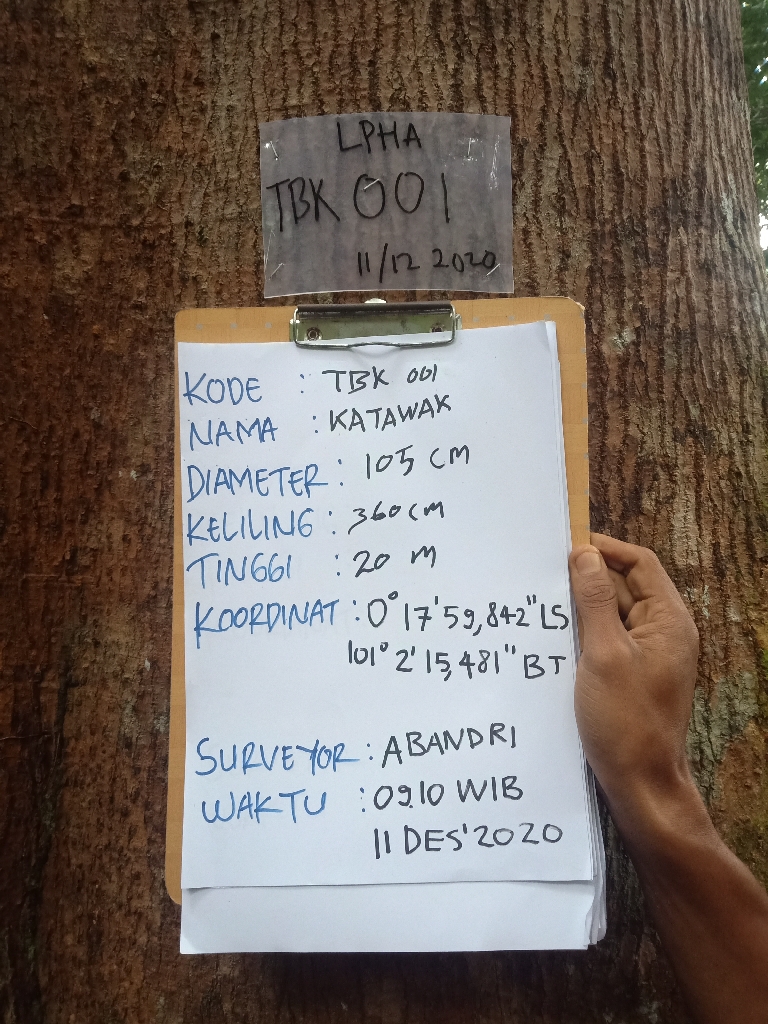 LPHA
TBK 001
11/12 2020
KODE : TBK 001
NAMA : KATAWAK
DIAMETER : 105 CM
KELILING : 360 CM
TINGGI : 20 M
KOORDINAT : 0° 17' 59,842" LS
101° 2' 15,481" BT
SURVEYOR : ABANDRI
WAKTU : 09.10 WIB
11 DES'2020